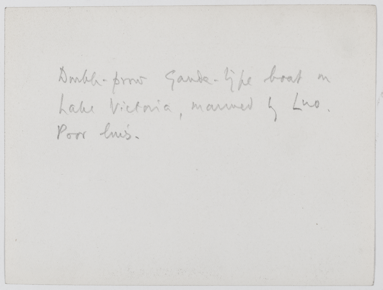 Double-prow Ganda-type boat on
Lake Victoria, manned by Luo.
Poor